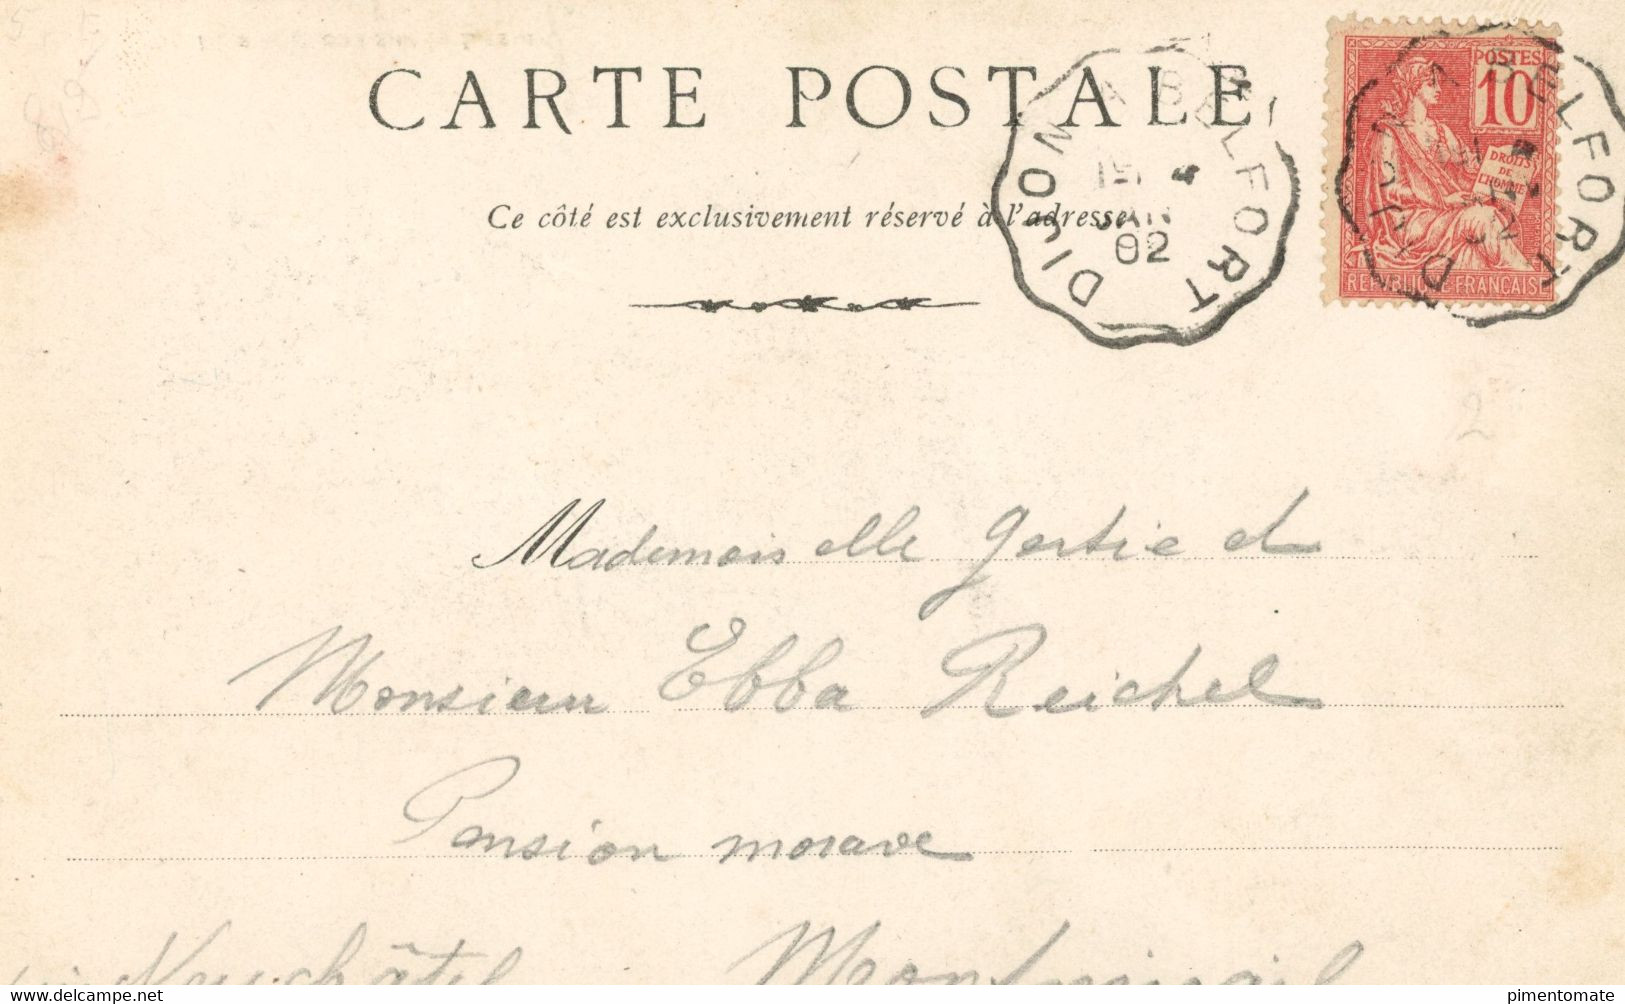 CARTE POSTALE
Ce côté est exclusivement réservé à l'adresse
DIJON A BELFORT
JAN
02
POSTES
10
DROITS
DE
L'HOMME
REPUBLIQUE FRANÇAISE
DIJON A BELFORT
2
Mademoiselle Gertie et
Monsieur Ebba Reichel
Pension morave
Neuchâtel Montmirail
www.delcampe.net
pimentomate